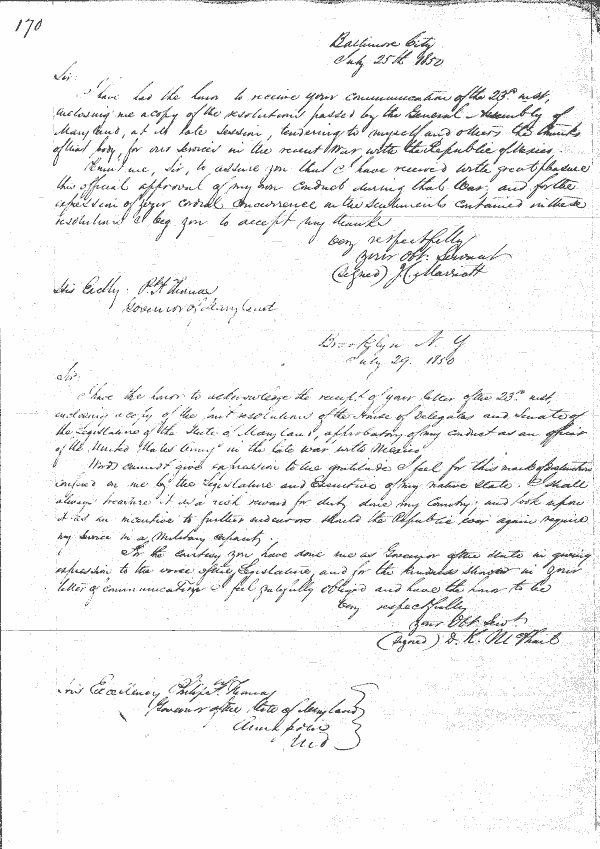 170
Baltimore City
July 25th 1850
Sir:
I have had the honor to receive your communication of the 23d inst,
enclosing me a copy of the resolutions passed by the General Assembly of
Maryland, at its late session, tendering to myself and others the thanks
of that body, for our services in the recent War with the Republic of Mexico.
Permit me, Sir, to assure you that I have received with great pleasure
this official approval of my own conduct during that War, and for the
expression of your cordial concurrence in the sentiments contained in these
resolutions I beg you to accept my thanks
Very respectfully
your Obt. Servant
(Signed) J. Marriott
His Excelly: P. F. Thomas
Governor of Maryland
Brooklyn N. Y
July 29. 1850
Sir:
I have the honor to acknowledge the receipt of your letter of the 23d inst,
enclosing a copy of the resolutions of the House of Delegates and Senate of
the Legislature of the State of Maryland, approbatory of my conduct as an officer
of the United States Army in the late war with Mexico.
Words cannot give expression to the gratitude I feel for this mark of distinction
confered on me by the Legislature and Executive of my native State. I shall
always treasure it as a rich reward for duty done my Country; and look upon
it as an incentive to further endeavors should the Republic ever again require
my service in a Military capacity
For the courtesy you have done me as Governor of the State in giving
expression to the voice of the Legislature, and for the kindness showed in your
letter of communication I feel gratefully obliged and have the honor to be
Very respectfully
your Obt Servt
(signed) D. H. McPhail
His Excellency Philip F. Thomas
Governor of the State of Maryland
Annapolis
Md